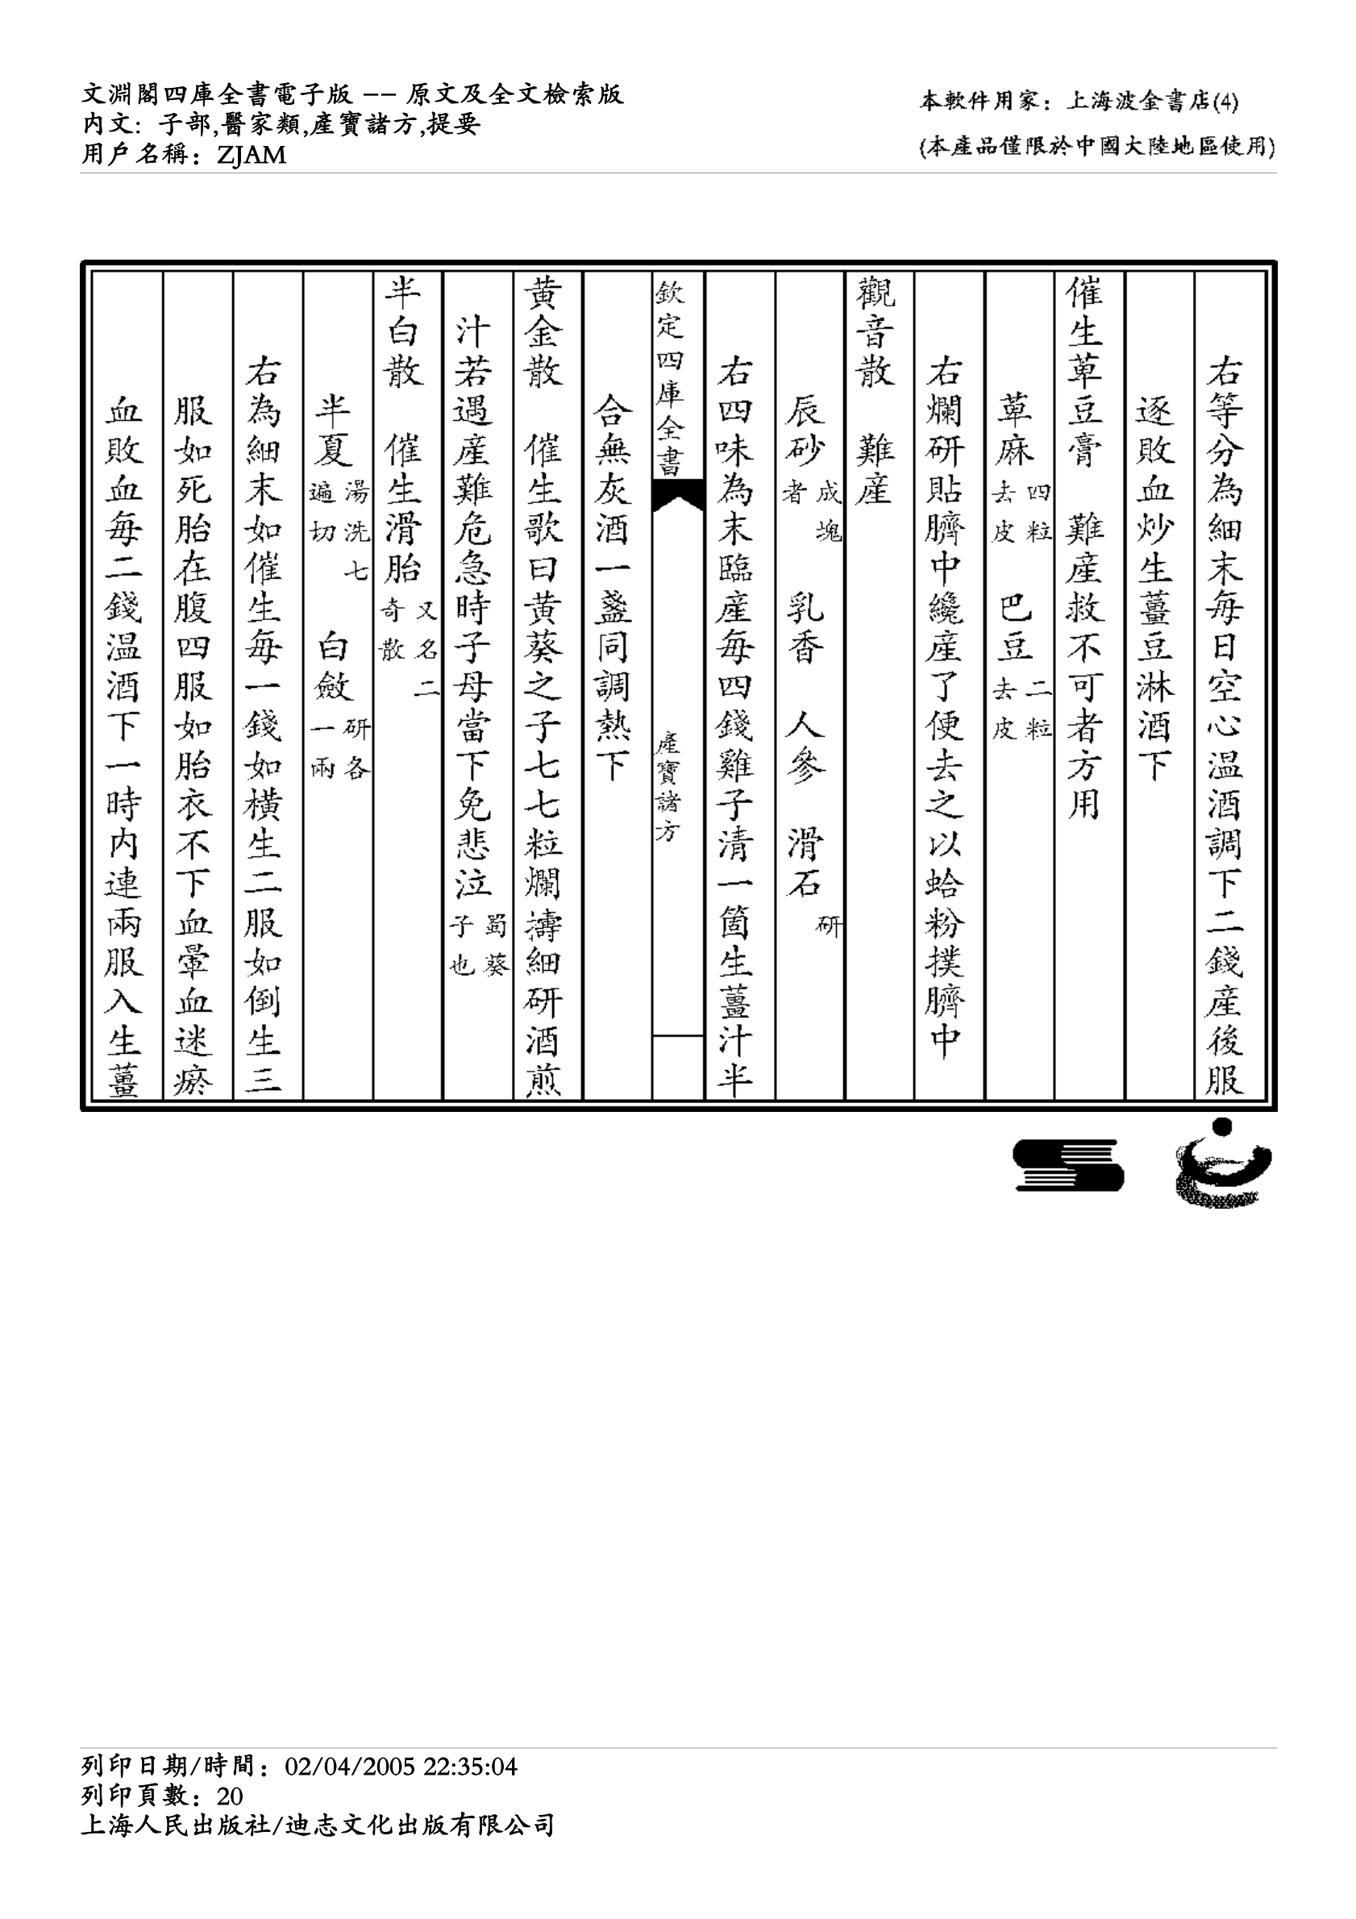 文淵閣四庫全書電子版 -- 原文及全文檢索版
內文: 子部,醫家類,產寶諸方,提要
用戶名稱: ZJAM
本軟件用家: 上海波金書店(4)
(本產品僅限於中國大陸地區使用)
右等分為細末每日空心温酒調下二錢産後服
逐敗血炒生薑豆淋酒下
催生萆豆膏 難産救不可者方用
萆麻四粒去皮 巴豆二粒去皮
右爛研貼臍中纔産了便去之以蛤粉撲臍中
觀音散 難産
辰砂成塊者 乳香 人參 滑石研
右四味為末臨産每四錢雞子清一箇生薑汁半
欽定四庫全書 產寶諸方
合無灰酒一盞同調熱下
黄金散 催生歌曰黄葵之子七七粒爛擣細研酒煎
汁若遇産難危急時子母當下免悲泣蜀葵子也
半白散 催生滑胎又名二奇散
半夏湯洗七遍切 白斂研各一兩
右為細末如催生每一錢如横生二服如倒生三
服如死胎在腹四服如胎衣不下血暈血迷瘀
血敗血每二錢温酒下一時内連兩服入生薑
列印日期/時間: 02/04/2005 22:35:04
列印頁數: 20
上海人民出版社/迪志文化出版有限公司